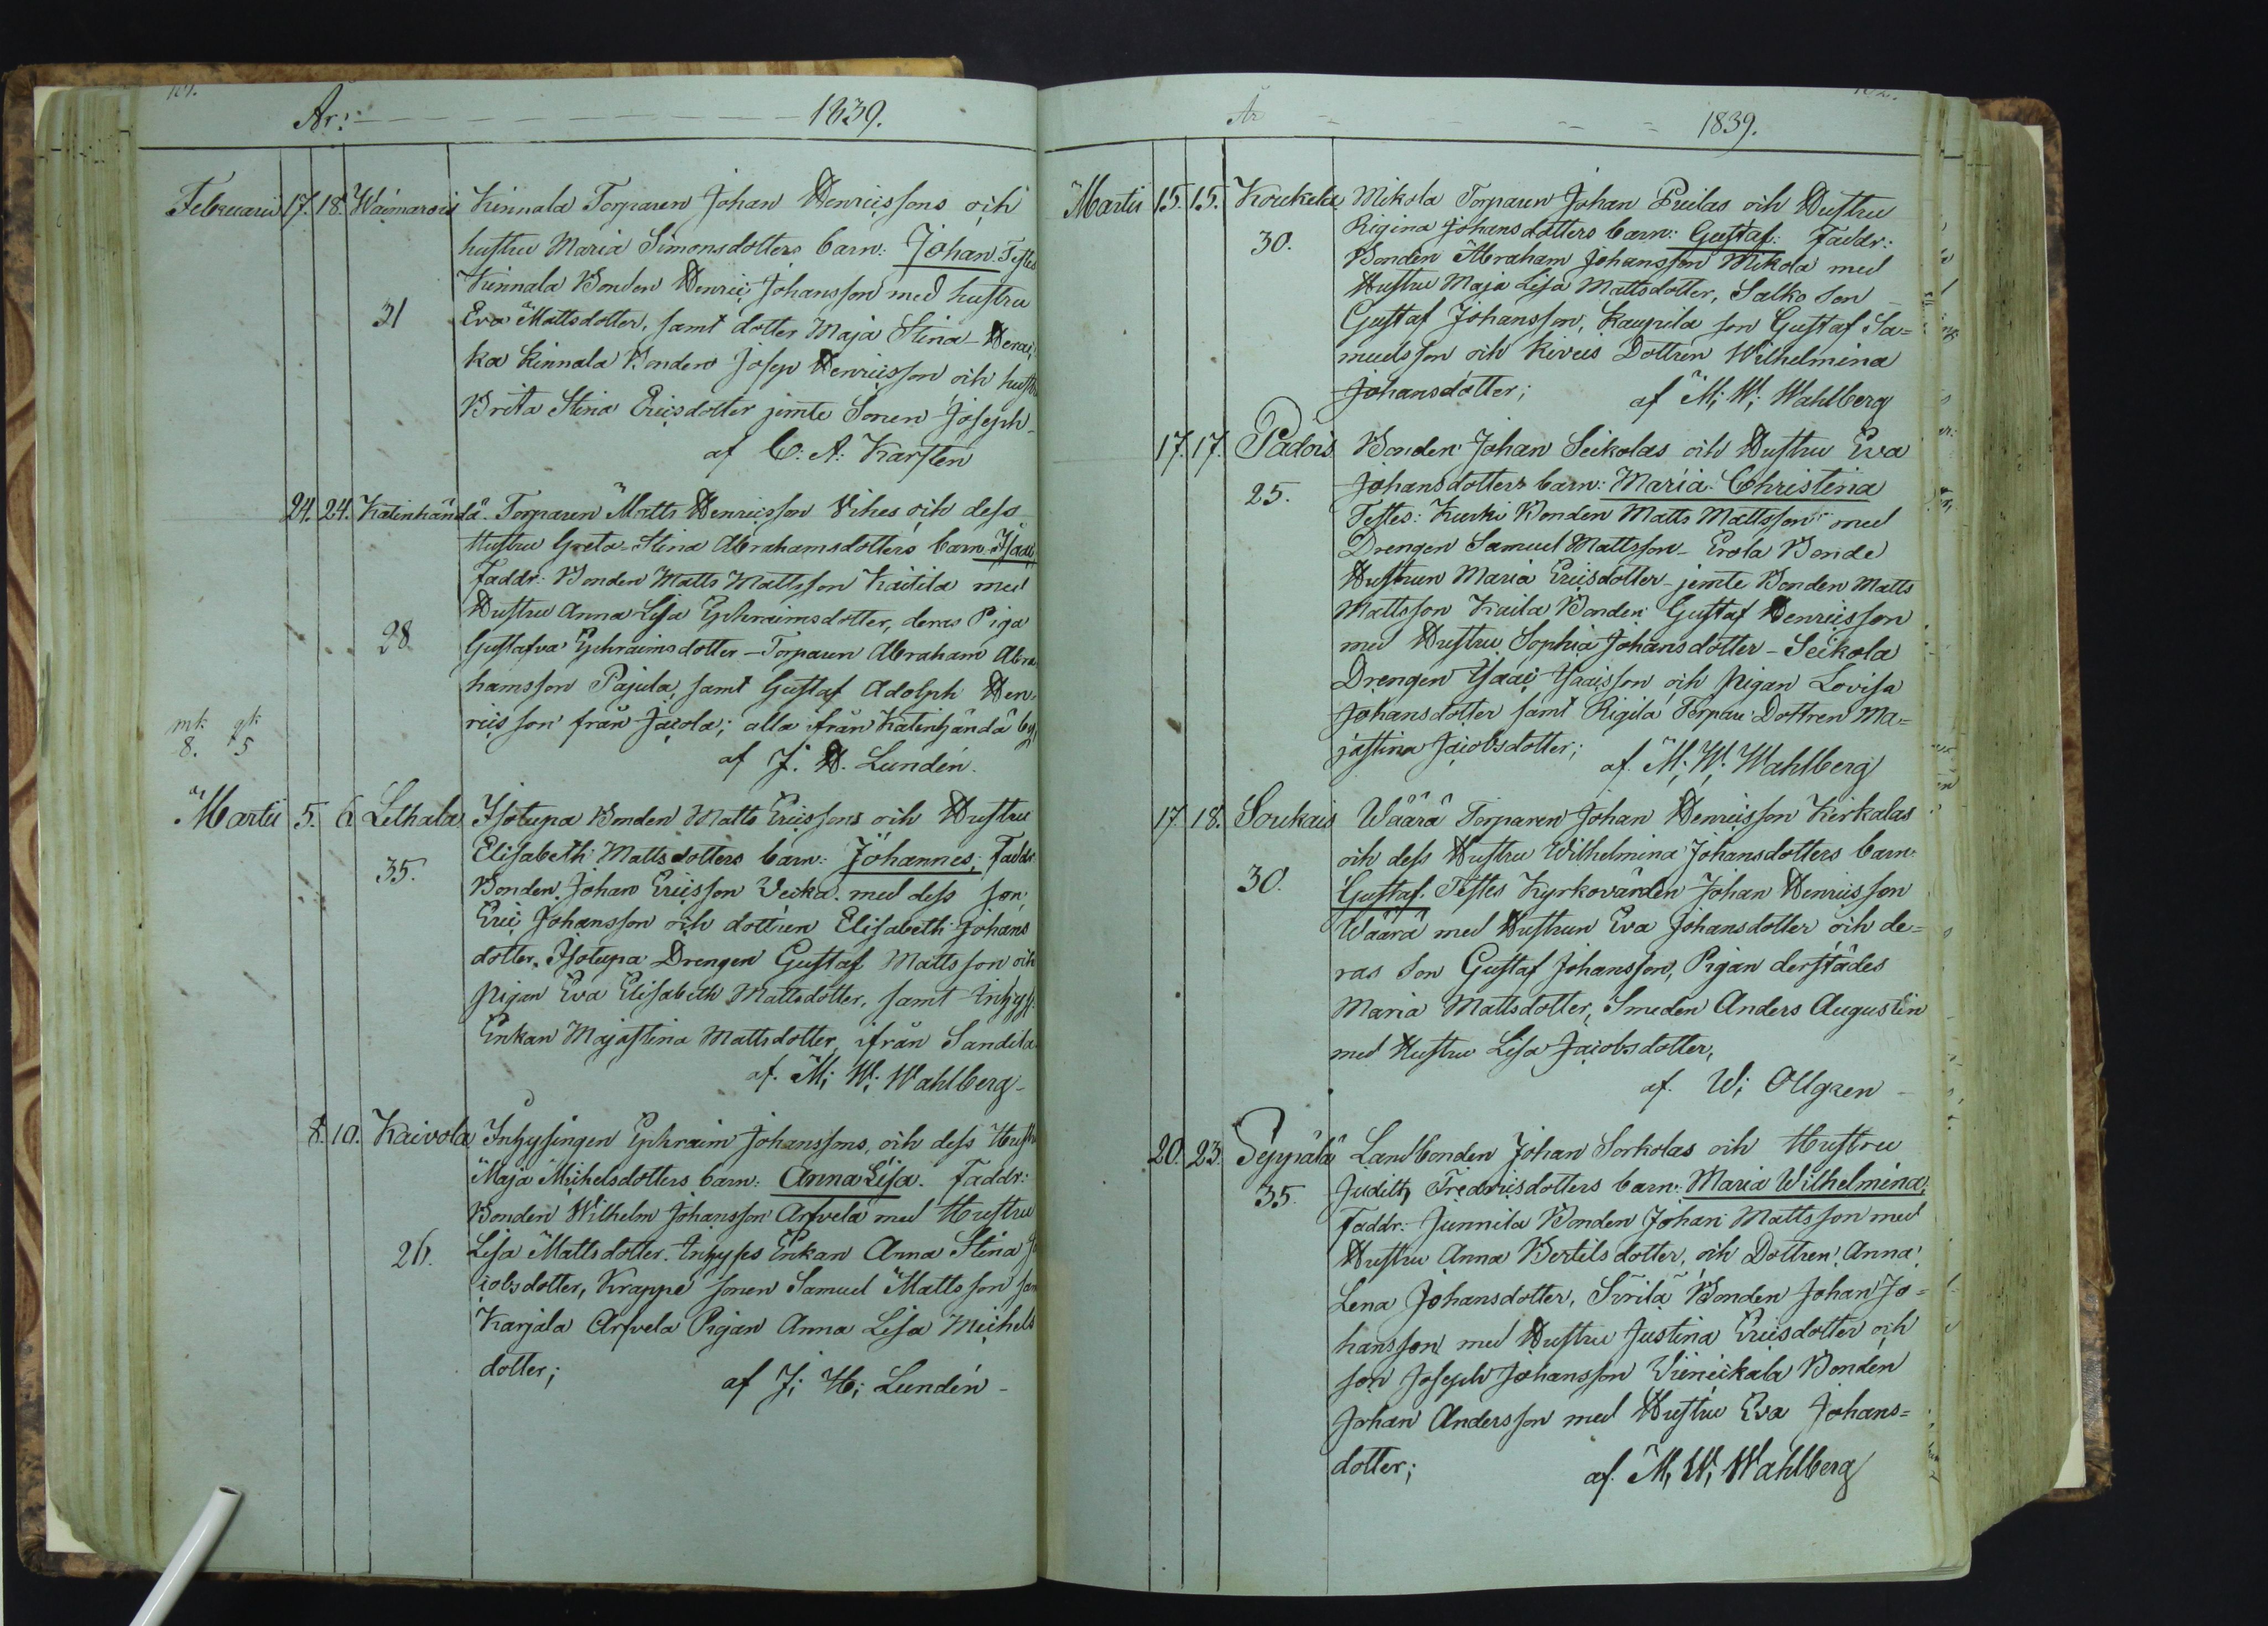 År: 1839.
Februarii 17. 18. Waimarois Kinnala Torparen Johan Henricssons och
hustru Maria Simonsdotters barn: Johan. Testes
Kinnala Bonden Henric Johansson med hustru
31 Eva Mattsdotter, samt dotter Maja Stina
ka Kinnala Bonden Josep Henricsson och hustru
Brita Stina Ericsdotter jemte Sonen Joseph
af C: A: Karsten
24. 24. Katinhändä. Torparen Matts Henricsson Vihes och dess
Hustru Greta Stina Abrahamsdotters barn Isaac
Faddr: Bonden Matts Mattsson Kaitila med
Hustru Anna Lisa Ephraimsdotter, deras Piga
28 Gustafva Ephraimsdotter – Torparen Abraham Abra
hamsson Pajula, samt Gustaf Adolph Hen
ricsson från Jacola; alla från Katinhändä by,
mk. qk.
8. 5
af J. H. Lundén.
Martii 5. 6. Lethala Isotupa Bonden Matts Ericssons och Hustru
Elisabeth Mattsdotters barn: Johannes; Faddr
35. Bonden Johan Ericsson Veska med dess son,
Eric Johansson och dottren Elisabeth Johans
dotter. Isotupa Drengen Gustaf Mattsson och
Pigan Eva Elisabeth Mattsdotter, samt Inhys
Enkan Majastina Mattsdotter, ifrån Sandila
af. M; W; Wahlberg –
8. 10. Kaivola Inhysingen Ephraim Johanssons, och dess Hustru
Maja Michelsdotters barn: Anna Lisa. Faddr:
Bonden Wilhelm Johansson Arfvela med Hustru
26. Lisa Mattsdotter. Inhyses Enkan Anna Stina Ja
cobsdotter, Krappe sonen Samuel Mattsson sam
Karjala Arfvela Pigan Anna Lisa Michels
dotter; af J; H; Lundén –
År 1839.
Martii 15. 15. Koukela Mikola Torparen Johan Prilas och Hustru
Rigina Johansdotters barn: Gustaf: Faddr:
30. Bonden Abraham Johansson Mikola med
Hustru Maja Lisa Mattsdotter, Salko Son
Gustaf Johansson, Kaupila son Gustaf Sa=
muelsson och Kivais Dottren Wilhelmina
Johansdotter; af M; W; Wahlberg
17. 17. Padois Bonden Johan Seikolas och Hustru Eva
25. Johansdotters barn: Maria Christina
Testes: Kurki Bonden Matts Mattsson med
Drengen Samuel Mattsson – Erola Bonde
Hustrun Maria Ericsdotter – jemte Bonden Matts
Mattsson Kaila Bonden Gustaf Henricsson
med Hustru Sophia Johansdotter – Seikola
Drengen Isaac Isacsson och Pigan Lovisa
Johansdotter samt Rigila Torpare Dottren Ma=
jastina Jacobsdotter; af. M; W; Wahlberg
17 18. Soukais Wäärä Torparen Johan Henricsson Kirkalas
och dess Hustru Wilhelmina Johansdotters barn
30. Gustaf. Testes Kyrkovärden Johan Henricsson
Wäärä med Hustrun Eva Johansdotter och de=
ras Son Gustaf Johansson, Pigan derstädes
Maria Mattsdotter, Smeden Anders Augustin
med Hustru Lisa Jacobsdotter,
af. W; Ollgren –
20. 23. Seppälä Landbonden Johan Sorkolas och Hustru
35. Judith Fredricsdotters barn: Maria Wilhelmina;
Faddr: Junnila Bonden Johan Mattsson med
Hustru Anna Bertilsdotter, och Dottren Anna
Lena Johansdotter, Sirila Bonden Johan Jo=
hansson med Hustru Justina Ericsdotter och
son Joseph Johansson Vieneckala Bonden
Johan Andersson med Hustru Eva Johans=
dotter; af. M, W; Wahlberg